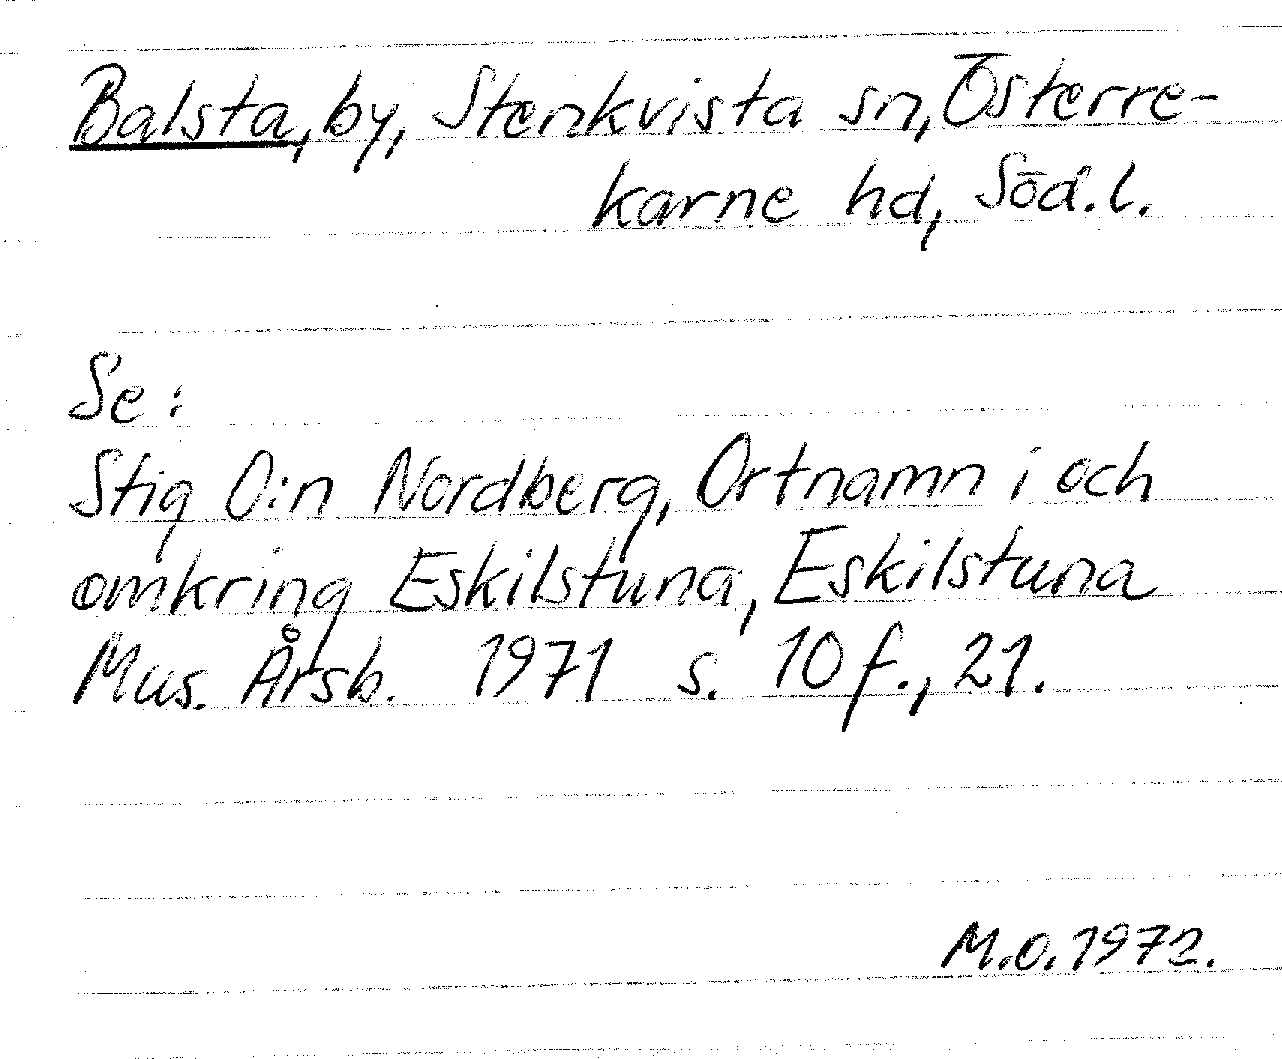 Balsta, by, Stenkvista sn, Österre-
karne hd, Söd.l.
Se:
Stig O:n Nordberg, Ortnamn i och
omkring Eskilstuna, Eskilstuna
Mus. Årsb. 1971 s. 10 f., 21.
M.O.1972.